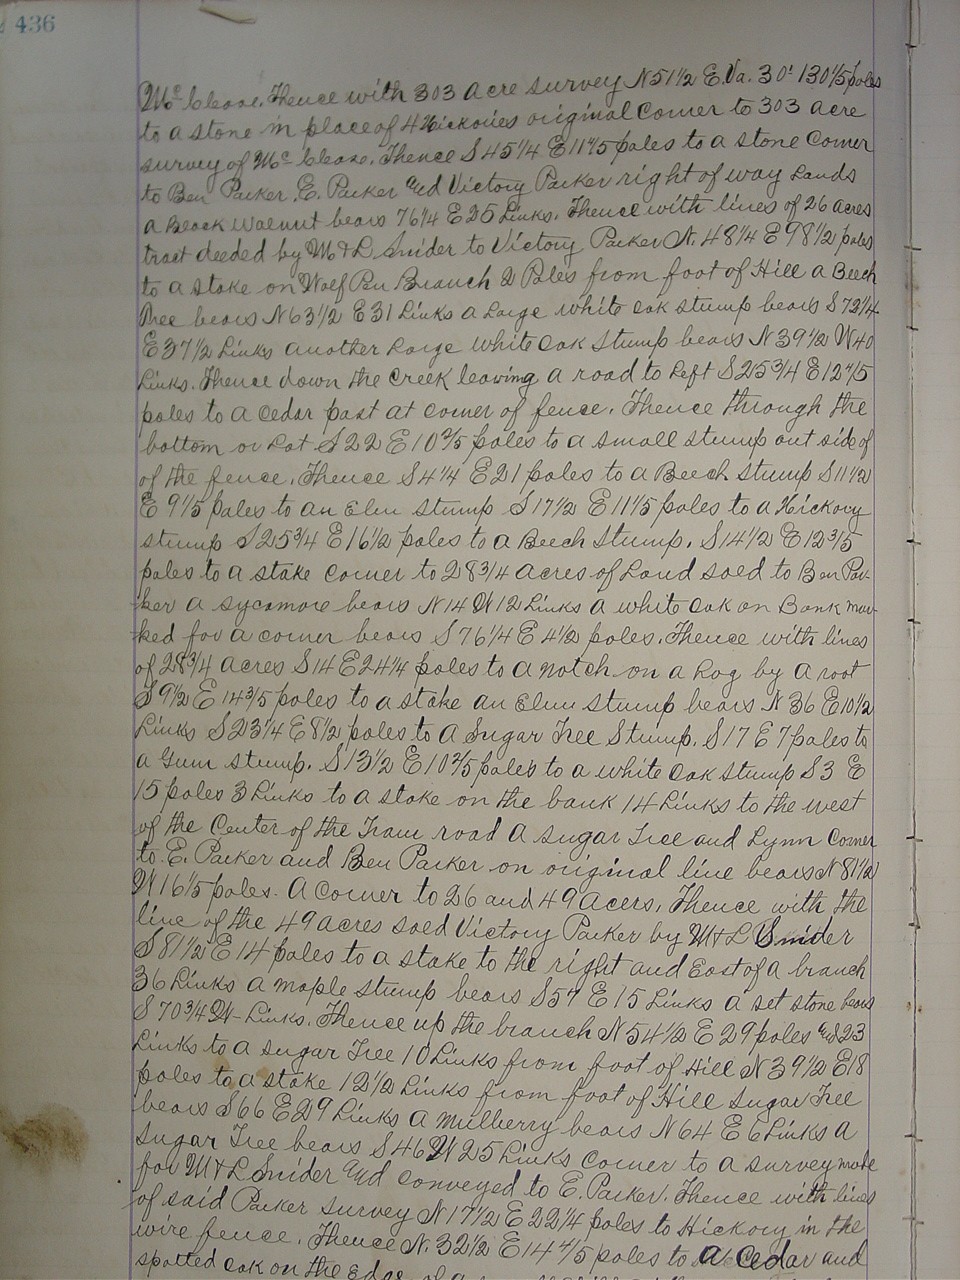 436
Mc Clease. Thence with 303 acre survey N 51 1/2 E. Va. 30' 130 1/5 poles
to a stone in place of 4 Hickories original Corner to 303 acre
survey of Mc Clease. Thence S 45 1/4 E 11 4/5 poles to a stone Corner
to Ben Parker, E. Parker and Victory Parker right of way Lands
a Black Walnut bears 76 1/4 E 25 Links. Thence with lines of 26 acres
tract deeded by M & L Snider to Victory Parker N. 48 1/4 E 98 1/2 poles
to a stake on Wolf Pen Branch 2 Poles from foot of Hill a Beech
Tree bears N 63 1/2 E 31 Links a Large white oak stump bears S 72 1/4
E 37 1/2 Links another Large white oak stump bears N 39 1/2 W 40
Links. Thence down the creek leaving a road to Left S 25 3/4 E 12 4/5
poles to a Cedar post at corner of fence. Thence through the
bottom or Lot S 22 E 10 2/5 poles to a small stump out side of
of the fence. Thence S 4 1/4 E 21 poles to a Beech stump S 11 1/2
E 9 1/5 poles to an Elm stump S 17 1/2 E 11 1/5 poles to a Hickory
stump S 25 3/4 E 16 1/2 poles to a Beech Stump. S 14 1/2 E 12 3/5
poles to a stake corner to 28 3/4 acres of Land sold to Ben Par-
ker a sycamore bears N 14 W 12 Links a white oak on Bank mar-
ked for a corner bears S 76 1/4 E 4 1/2 poles. Thence with lines
of 28 3/4 acres S 14 E 24 1/4 poles to a notch on a Log by a root
S 9 1/2 E 14 3/5 poles to a stake an Elm stump bears N 36 E 10 1/2
Links S 23 1/4 E 8 1/2 poles to a Sugar Tree Stump. S 17 E 7 poles to
a Gum stump. S 13 1/2 E 10 2/5 poles to a white oak stump S 3 E
15 poles 3 Links to a stake on the bank 14 Links to the west
of the Center of the Tram road a sugar Tree and Lynn Corner
to E. Parker and Ben Parker on original line bears N 81 1/2
W 16 1/5 poles. A Corner to 26 and 49 Acers. Thence with the
line of the 49 acres sold Victory Parker by M & L Snider
S 81 1/2 E 14 poles to a stake to the right and East of a branch
36 Links a maple stump bears S 57 E 15 Links a set stone bears
S 70 3/4 W - Links. Thence up the branch N 54 1/2 E 29 poles and 23
Links to a sugar Tree 10 Links from foot of Hill N 39 1/2 E 18
poles to a stake 12 1/2 Links from foot of Hill Sugar Tree
bears S 66 E 29 Links a mulberry bears N 64 E 6 Links a
sugar Tree bears S 46 W 25 Links corner to a survey made
for M & L Snider and conveyed to E. Parker. Thence with lines
of said Parker survey N 17 1/2 E 22 1/4 poles to Hickory in the
wire fence. Thence N. 32 1/2 E 14 4/5 poles to a Cedar and
spotted oak on the Edge of a